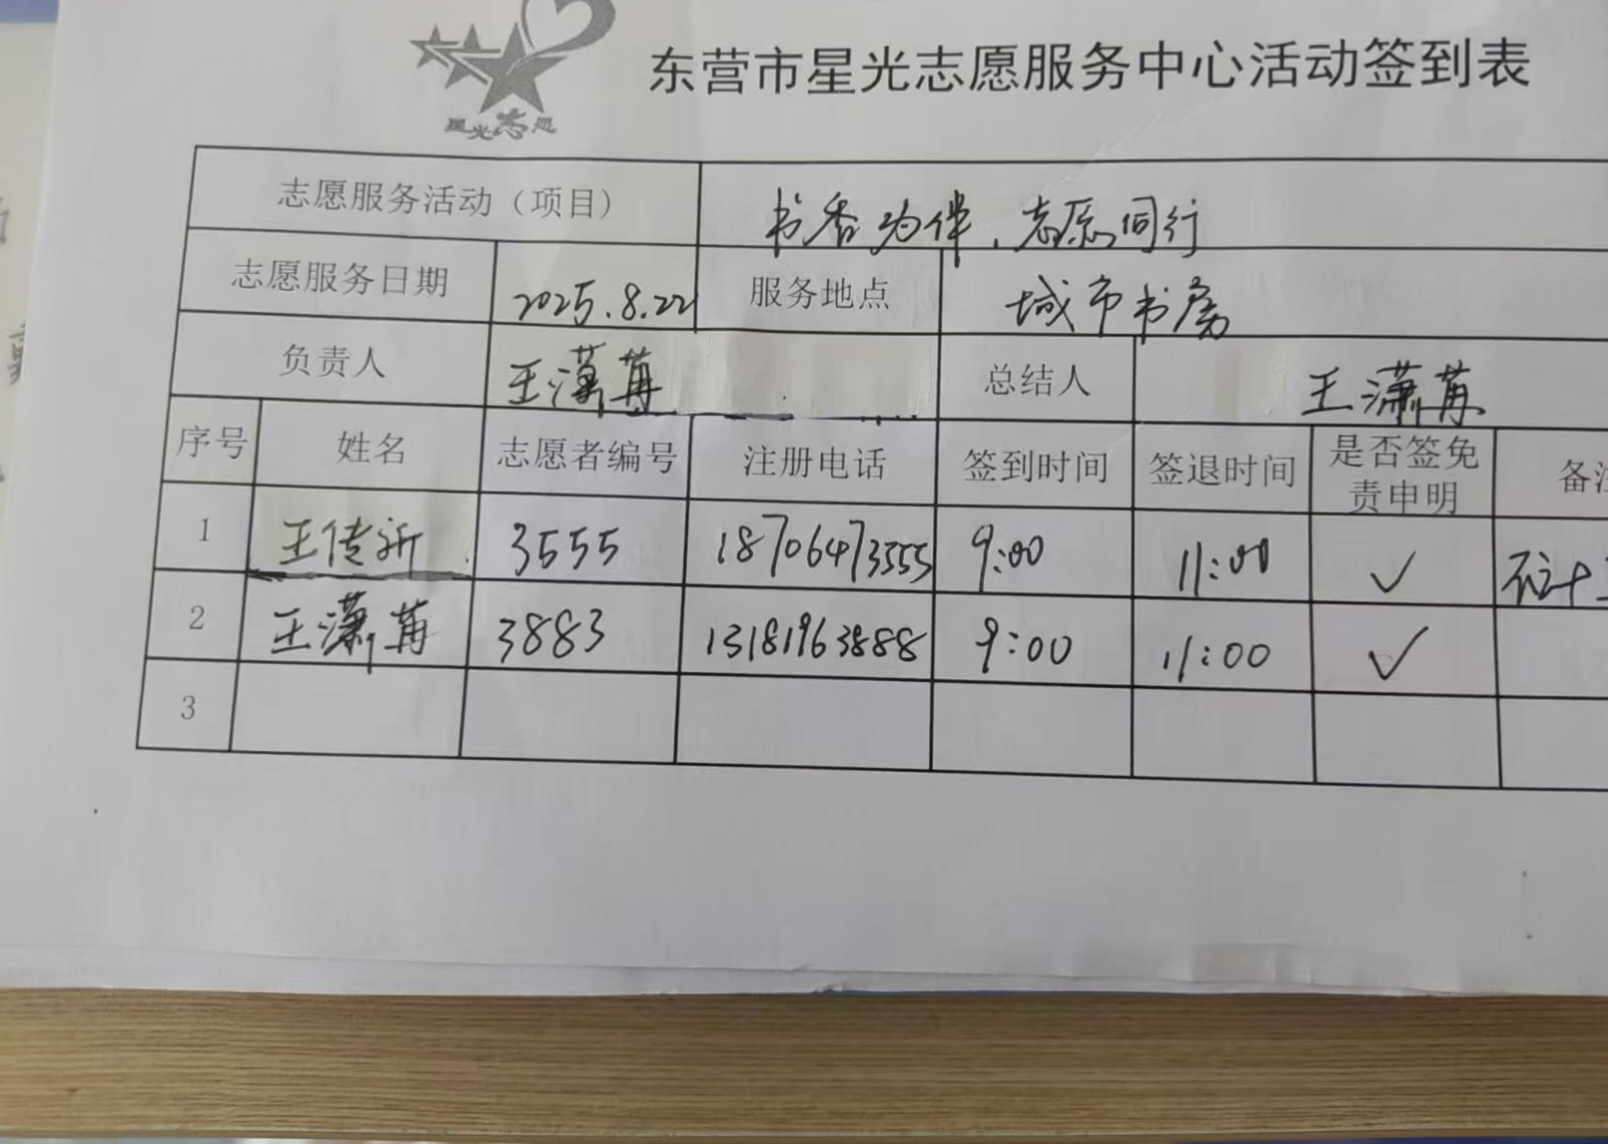 星光志愿
东营市星光志愿服务中心活动签到表
志愿服务活动（项目） 书香为伴，志愿同行
志愿服务日期 2025.8.22 服务地点 城市书房
负责人 王潇苒 总结人 王潇苒
序号 姓名 志愿者编号 注册电话 签到时间 签退时间 是否签免责申明 备注
1 王传沂 3555 18706473555 9:00 11:00 ✓
2 王潇苒 3883 13181963888 9:00 11:00 ✓
3